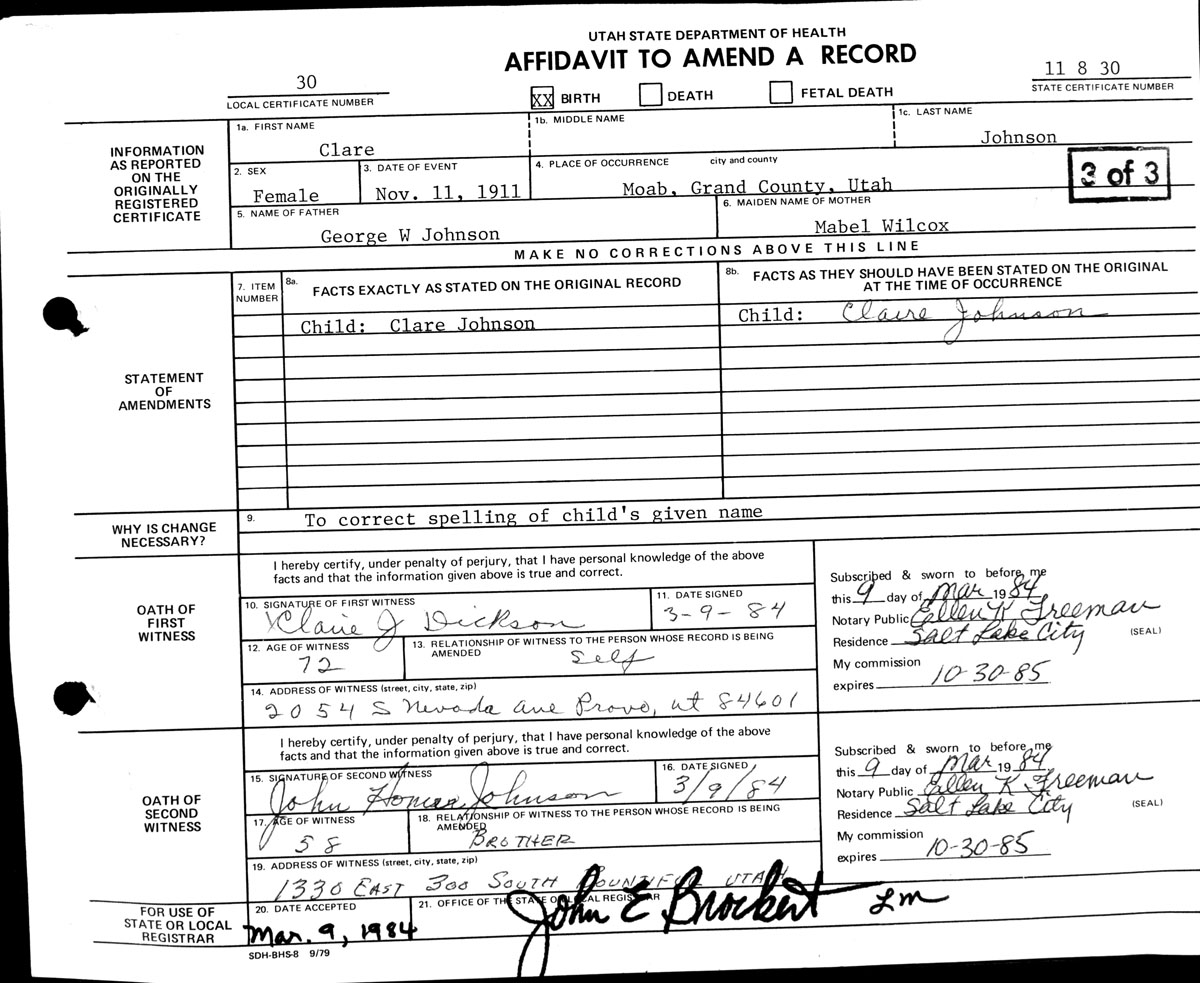 UTAH STATE DEPARTMENT OF HEALTH
AFFIDAVIT TO AMEND A RECORD
30
LOCAL CERTIFICATE NUMBER
XX BIRTH DEATH FETAL DEATH
11 8 30
STATE CERTIFICATE NUMBER
INFORMATION AS REPORTED ON THE ORIGINALLY REGISTERED CERTIFICATE
1a. FIRST NAME
Clare
1b. MIDDLE NAME
1c. LAST NAME
Johnson
2. SEX
Female
3. DATE OF EVENT
Nov. 11, 1911
4. PLACE OF OCCURRENCE city and county
Moab, Grand County, Utah
3 of 3
5. NAME OF FATHER
George W Johnson
6. MAIDEN NAME OF MOTHER
Mabel Wilcox
MAKE NO CORRECTIONS ABOVE THIS LINE
STATEMENT OF AMENDMENTS
7. ITEM NUMBER
8a. FACTS EXACTLY AS STATED ON THE ORIGINAL RECORD
8b. FACTS AS THEY SHOULD HAVE BEEN STATED ON THE ORIGINAL AT THE TIME OF OCCURRENCE
Child: Clare Johnson
Child: Claire Johnson
WHY IS CHANGE NECESSARY?
9. To correct spelling of child's given name
OATH OF FIRST WITNESS
I hereby certify, under penalty of perjury, that I have personal knowledge of the above
facts and that the information given above is true and correct.
10. SIGNATURE OF FIRST WITNESS
Claire J Dickson
11. DATE SIGNED
3-9-84
12. AGE OF WITNESS
72
13. RELATIONSHIP OF WITNESS TO THE PERSON WHOSE RECORD IS BEING AMENDED
Self
14. ADDRESS OF WITNESS (street, city, state, zip)
2054 S Nevada Ave Provo, ut 84601
Subscribed & sworn to before me
this 9 day of Mar 1984
Notary Public Ellen K Freeman
Residence Salt Lake City (SEAL)
My commission
expires 10-30-85
OATH OF SECOND WITNESS
I hereby certify, under penalty of perjury, that I have personal knowledge of the above
facts and that the information given above is true and correct.
15. SIGNATURE OF SECOND WITNESS
John Homer Johnson
16. DATE SIGNED
3/9/84
17. AGE OF WITNESS
58
18. RELATIONSHIP OF WITNESS TO THE PERSON WHOSE RECORD IS BEING AMENDED
BROTHER
19. ADDRESS OF WITNESS (street, city, state, zip)
1330 EAST 300 SOUTH BOUNTIFUL UTAH
Subscribed & sworn to before me
this 9 day of Mar 1984
Notary Public Ellen K Freeman
Residence Salt Lake City (SEAL)
My commission
expires 10-30-85
FOR USE OF STATE OR LOCAL REGISTRAR
20. DATE ACCEPTED
Mar. 9, 1984
21. OFFICE OF THE STATE OR LOCAL REGISTRAR
John E Brockert Lm
SDH-BHS-8 9/79